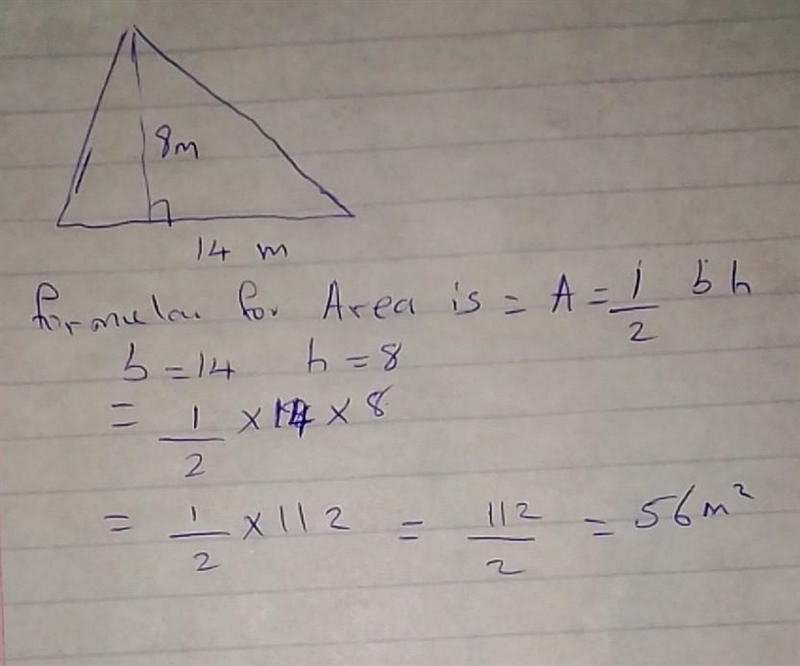 8m
14 m
formular for Area is = A = 1/2 bh
b = 14 h = 8
= 1/2 × 14 × 8
= 1/2 × 112 = 112/2 = 56m²